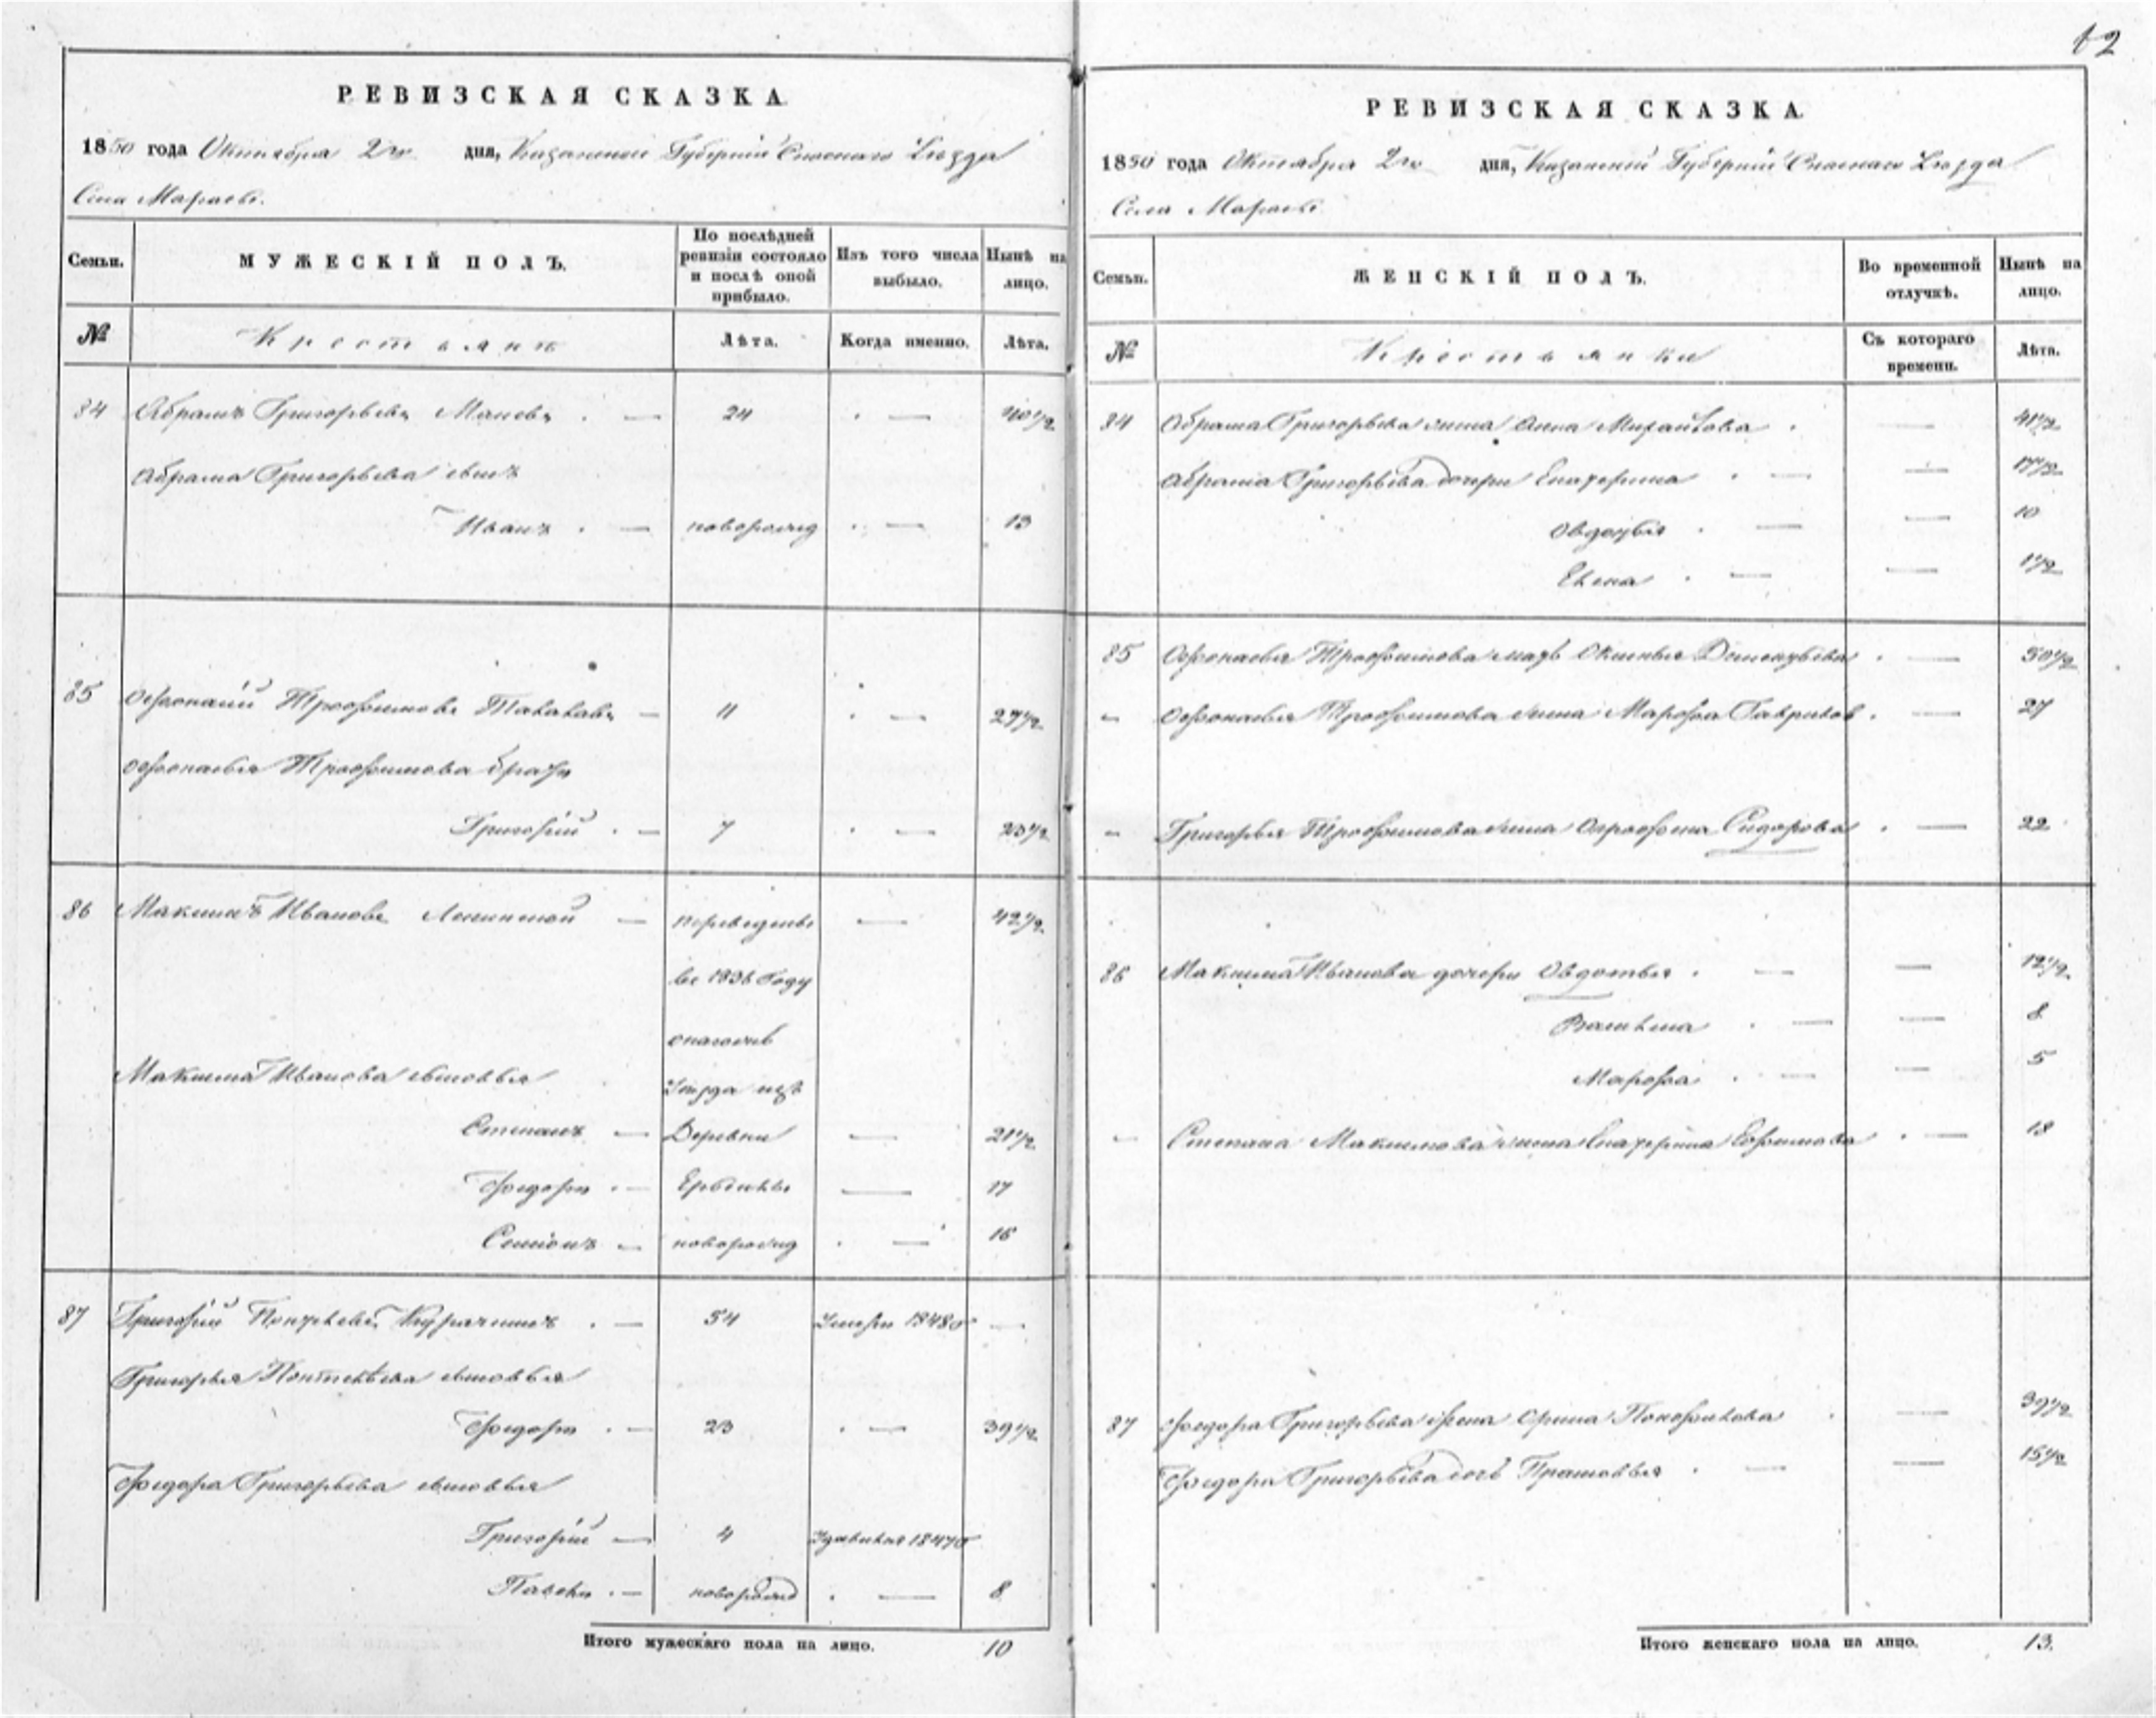 12
РЕВИЗСКАЯ СКАЗКА
1850 года Октября 2го дня, Казанской Губернии Спаскаго Уезда
Села
МУЖЕСКІЙ ПОЛЪ.
Семьи.
По послѣдней ревизіи состояло и послѣ оной прибыло.
Изъ того числа выбыло.
Нынѣ на лицо.
№ Крестьяне
Лѣта. Когда именно. Лѣта.
84 Абрамъ Григорьевъ . — 24 . — 40 1/2
Абрама Григорьева сынъ
Иванъ . — новорожд . — 13
85 Афонасій Трофимовъ — 11 . — 27 1/2
Афонасья Трофимова братъ
Григорій . — 7 . — 23 1/2
86 Максимъ Ивановъ — переведенъ — 42 1/2
въ 1836 году
Максима Ивановa сыновья Уезда изъ
Степанъ — Деревни — 21 1/2
Федоръ . — — 17
Семіонъ — новорожд . — 16
87 Григорій Курачкинъ . — 54 Умеръ 1848 —
Григорья сыновья
Федоръ . — 23 . — 39 1/2
Федора Григорьева сыновья
Григорій — 4 1847
Павелъ . — новорожд . — 8
Итого мужескаго пола на лицо. 10
РЕВИЗСКАЯ СКАЗКА
1850 года Октября 2го дня, Казанской Губерніи Спаскаго Уезда
Села
Семьи.
ЖЕНСКІЙ ПОЛЪ.
Во временной отлучкѣ.
Нынѣ на лицо.
№ Крестьянки
Съ котораго времени. Лѣта.
84 Абрама Григорьева жена Анна Михайлова . — 41 1/2
Абрама Григорьева дочери Екатерина . — — 17 1/2
Овдотья . — — 10
Елена . — — 1 1/2
85 Афонасья Трофимова мать Окинья . — 50 1/2
— Афонасья Трофимова жена Марфа Гаврилов . — 27
— Григорья Трофимова жена Огрофена Сидорова . — 22
86 Максима Иванова дочери Овдотья . — — 12 1/2
. — — 8
Марфа . — — 5
— Степана Максимова жена Екатерина Ефимова . — 18
87 Федора Григорьева жена Орина . — 39 1/2
Федора Григорьева дочь Прасковья . — — 15 1/2
Итого женскаго пола на лицо. 13.